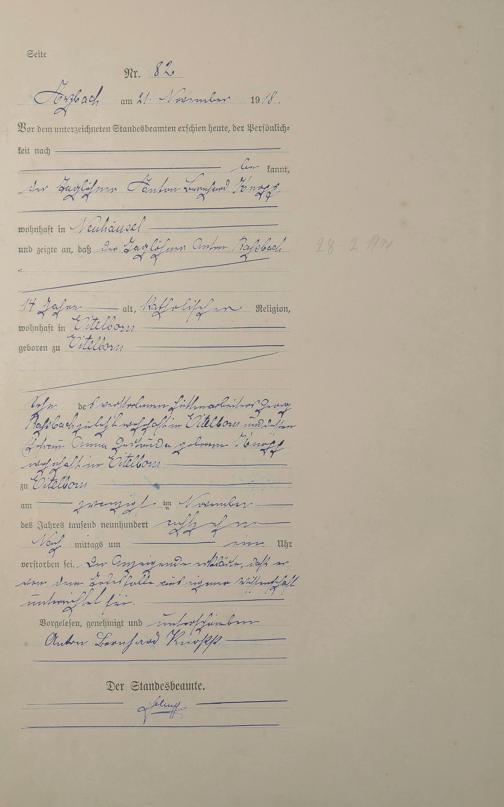 Seite
Nr. 82
Arzbach am 21. November 1918.
Vor dem unterzeichneten Standesbeamten erschien heute, der Persönlich-
keit nach
be kannt,
der Taglöhner Anton Bernhard Knopp
wohnhaft in Neuhäusel
und zeigte an, daß der Taglöhner Anton
14 Jahre alt, katholischer Religion,
wohnhaft in Eitelborn
geboren zu Eitelborn
Sohn des verstorbenen Hüttenarbeiters Georg
zuletzt wohnhaft in Eitelborn und dessen
Ehefrau Anna geborene Knopp
wohnhaft in Eitelborn
zu Eitelborn
am zwanzigsten November
des Jahres tausend neunhundert achtzehn
Nach mittags um ein Uhr
verstorben sei. Der Anzeigende erklärte, daß er
von dem Todesfalle aus eigener Wissenschaft
unterrichtet sei.
Vorgelesen, genehmigt und unterschrieben
Anton Bernhard Knopp
Der Standesbeamte.